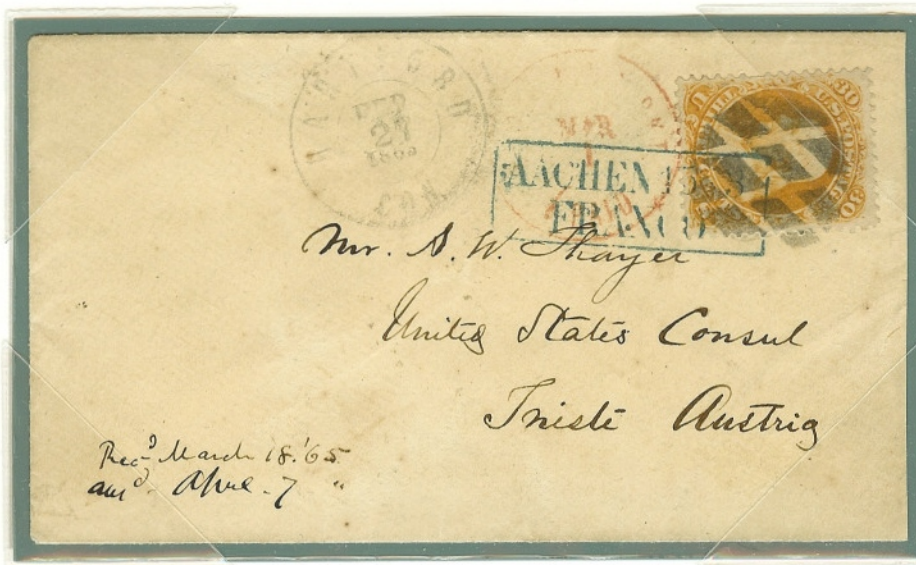 HARTFORD
FEB
27
1865
CON.
MAR
1
PAID
30 U.S. POSTAGE 30
AACHEN
FRANCO
Mr. A. W. Thayer
United States Consul
Trieste Austria
Recd March 18. '65
ansd. April. 7 "